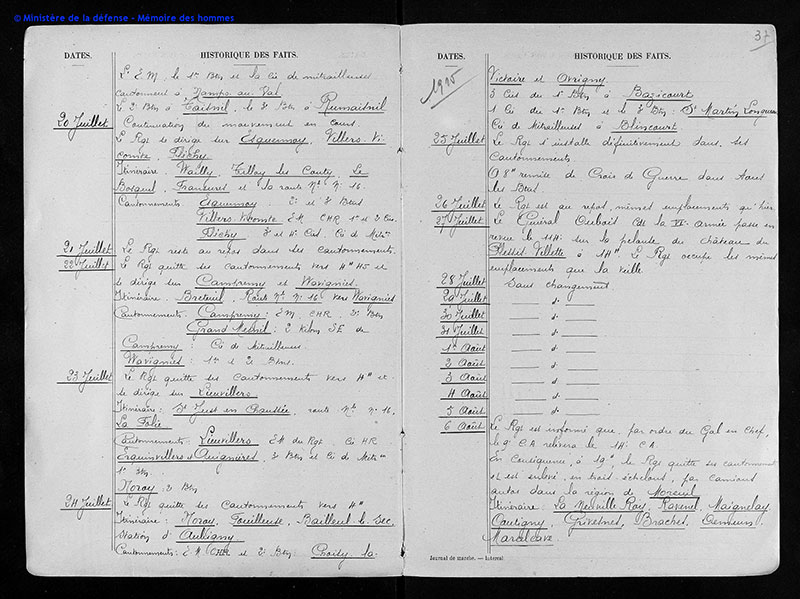 © Ministère de la défense - Mémoire des hommes
DATES. HISTORIQUE DES FAITS.
L'E.M, le 1er Bton et la Cie de mitrailleuses
cantonnent à Namps au Val
Le 2e Bton à Taisnil, le 3e Bton à Rumaisnil
20 Juillet Continuation du mouvement en cours.
Le Rgt se dirige sur Esquennoy, Villers Vi-
comte, Flechy
Itinéraire Wailly, Tilloy les Conty, Le
Bosquel, Fransures et la route Nle N° 16.
Cantonnements Esquennoy : 2e et 3e Btons
Villers Vicomte EM CHR 1e et 2 Cies
Flechy 3e et 4e Cies Cie de Mitses
21 Juillet Le Rgt reste au repos dans les cantonnements.
22 Juillet Le Rgt quitte ses cantonnements vers 4h45 et
se dirige sur Campremy et Wavignies.
Itinéraire : Breteuil, Route Nle N° 16 vers Wavignies
Cantonnements : Campremy : EM, CHR, 3e Bton
Grand Mesnil : 2 Kilom SE de
Campremy : Cie de Mitrailleuses.
Wavignies : 1er et 2e Btons.
23 Juillet Le Rgt quitte ses cantonnements vers 4h et
se dirige sur Lieuvillers
Itinéraire : St Just en Chaussée, route Nle N° 16,
La Folie
Cantonnements : Lieuvillers EM du Rgt, Cie HR
Erquinvillers & Cuignières, 3e Bton et Cie de Mitses
1er Bton
Noroy : 2e Bton
24 Juillet Le Rgt quitte ses cantonnements vers 4h
Itinéraire : Noroy, Fouilleuse, Bailleul le Soc,
station d'Avrigny
Cantonnements : EM CHR et 2e Bton : Choisy la
37
DATES. HISTORIQUE DES FAITS.
1915
Victoire et Avrigny.
3 Cies du 1er Bton à Bazicourt
1 Cie du 1er Bton et le 3e Bton : St Martin Longueau
Cie de Mitrailleuses à Blincourt
25 Juillet Le Rgt s'installe définitivement dans ses
cantonnements
A 8h remise de Croix de Guerre dans tous
les Btons.
26 Juillet Le Rgt est au repos, mêmes emplacements qu'hier
27 Juillet Le Général Dubail Cdt la VIe armée passe en
revue le 114e sur la pelouse du château du
Plessis Villette à 14h. Le Rgt occupe les mêmes
emplacements que la veille
28 Juillet Sans changement
29 Juillet — d° —
30 Juillet — d° —
31 Juillet — d° —
1er Août — d° —
2 Août — d° —
3 Août — d° —
4 Août — d° —
5 Août — d° —
6 Août Le Rgt est informé que, par ordre du Gal en Chef,
le 9e CA relèvera le 14e C.A.
En conséquence, à 19h, le Rgt quitte ses cantonnements
et est enlevé, en trois échelons, par camions
autos dans la région de Moreuil
Itinéraire : La Neuville Roy, Ravenel, Maignelay
Coutigny, Grivesnes, Braches, Demuin,
Marcelcave
Journal de marche. — Intercal.